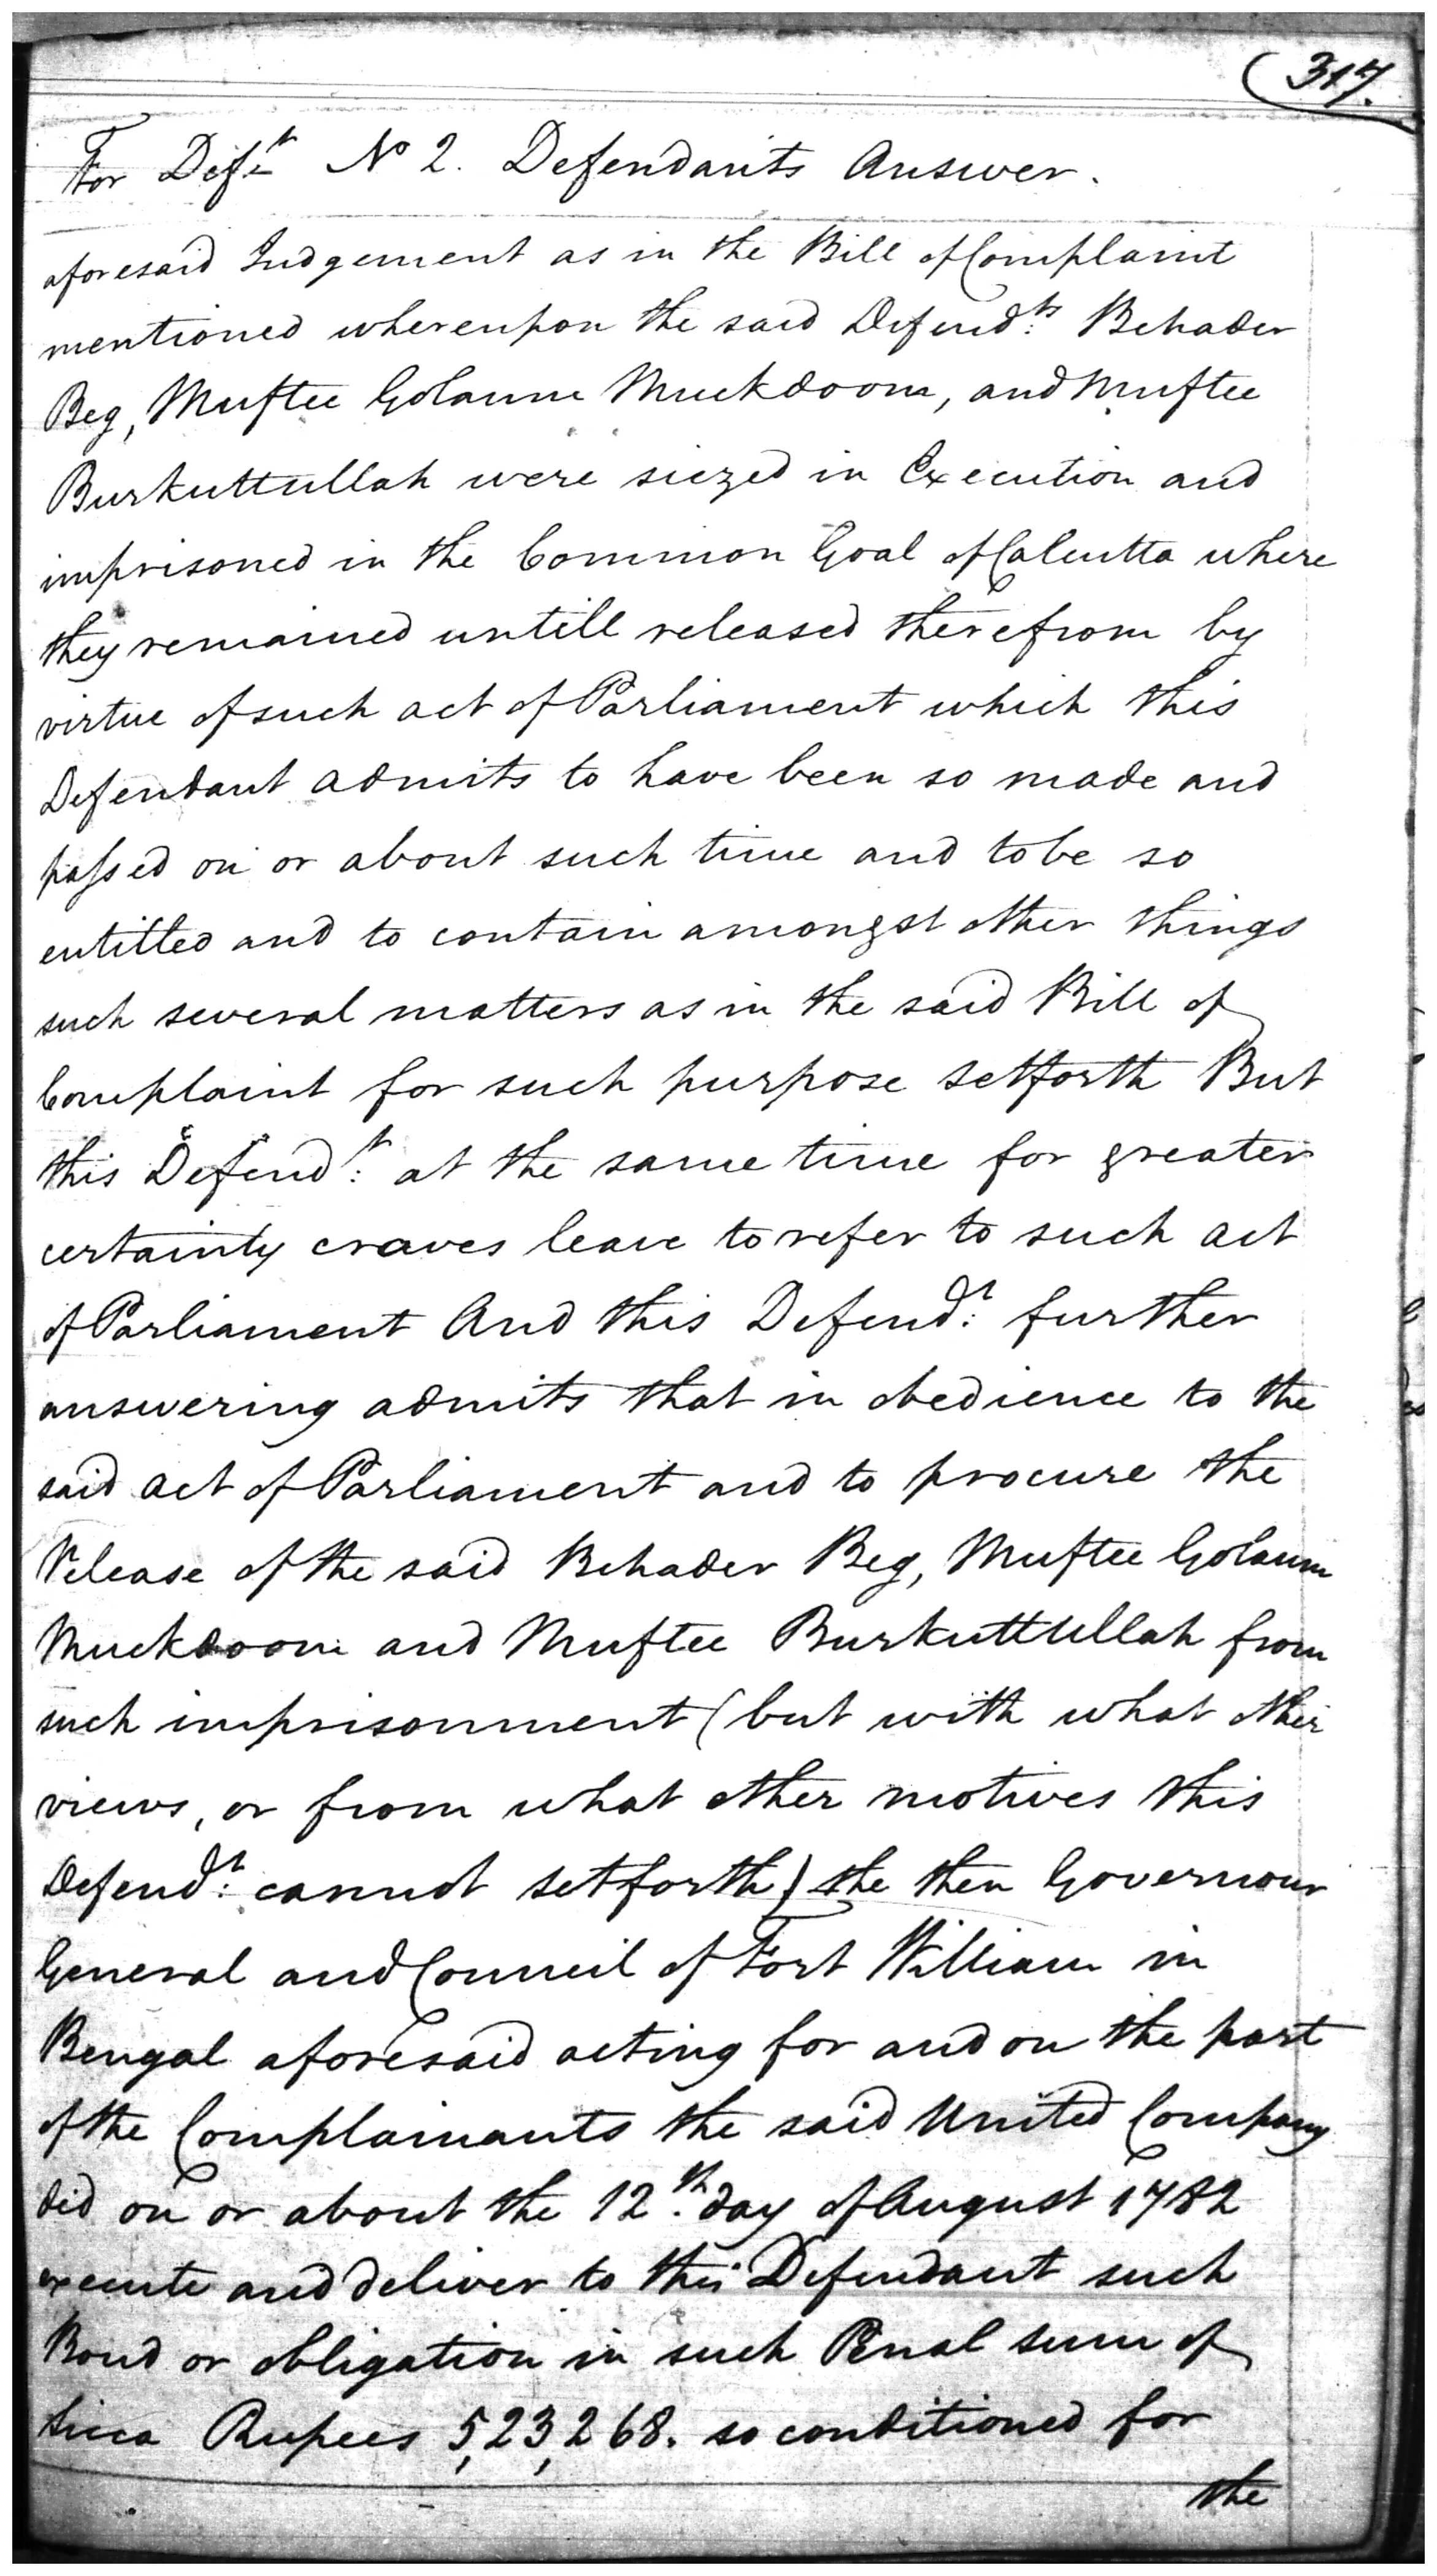 (317.
For Def.t No 2. Defendants Answer.
aforesaid Judgement as in the Bill of Complaint
mentioned whereupon the said Defend:ts Behader
Beg, Muftee Golaum Muckdoom, and Muftee
Burkuttullah were siezed in Execution and
imprisoned in the Common Goal of Calcutta where
they remained untill released therefrom by
virtue of such act of Parliament which this
Defendant admits to have been so made and
passed on or about such time and to be so
entitled and to contain amongst other things
such several matters as in the said Bill of
Complaint for such purpose setforth But
this Defend:t at the same time for greater
certainty craves leave to refer to such act
of Parliament And this Defend:t further
answering admits that in obedience to the
said act of Parliament and to procure the
Release of the said Behader Beg, Muftee Golaum
Muckdoom and Muftee Burkuttullah from
such imprisonment (but with what other
views, or from what other motives this
Defend:t cannot setforth) the then Governour
General and Council of Fort William in
Bengal aforesaid acting for and on the part
of the Complainants the said United Company
did on or about the 12.th day of August 1782
execute and deliver to this Defendant such
Bond or obligation in such Penal sum of
Sicca Rupees 5,23,268. so conditioned for
the